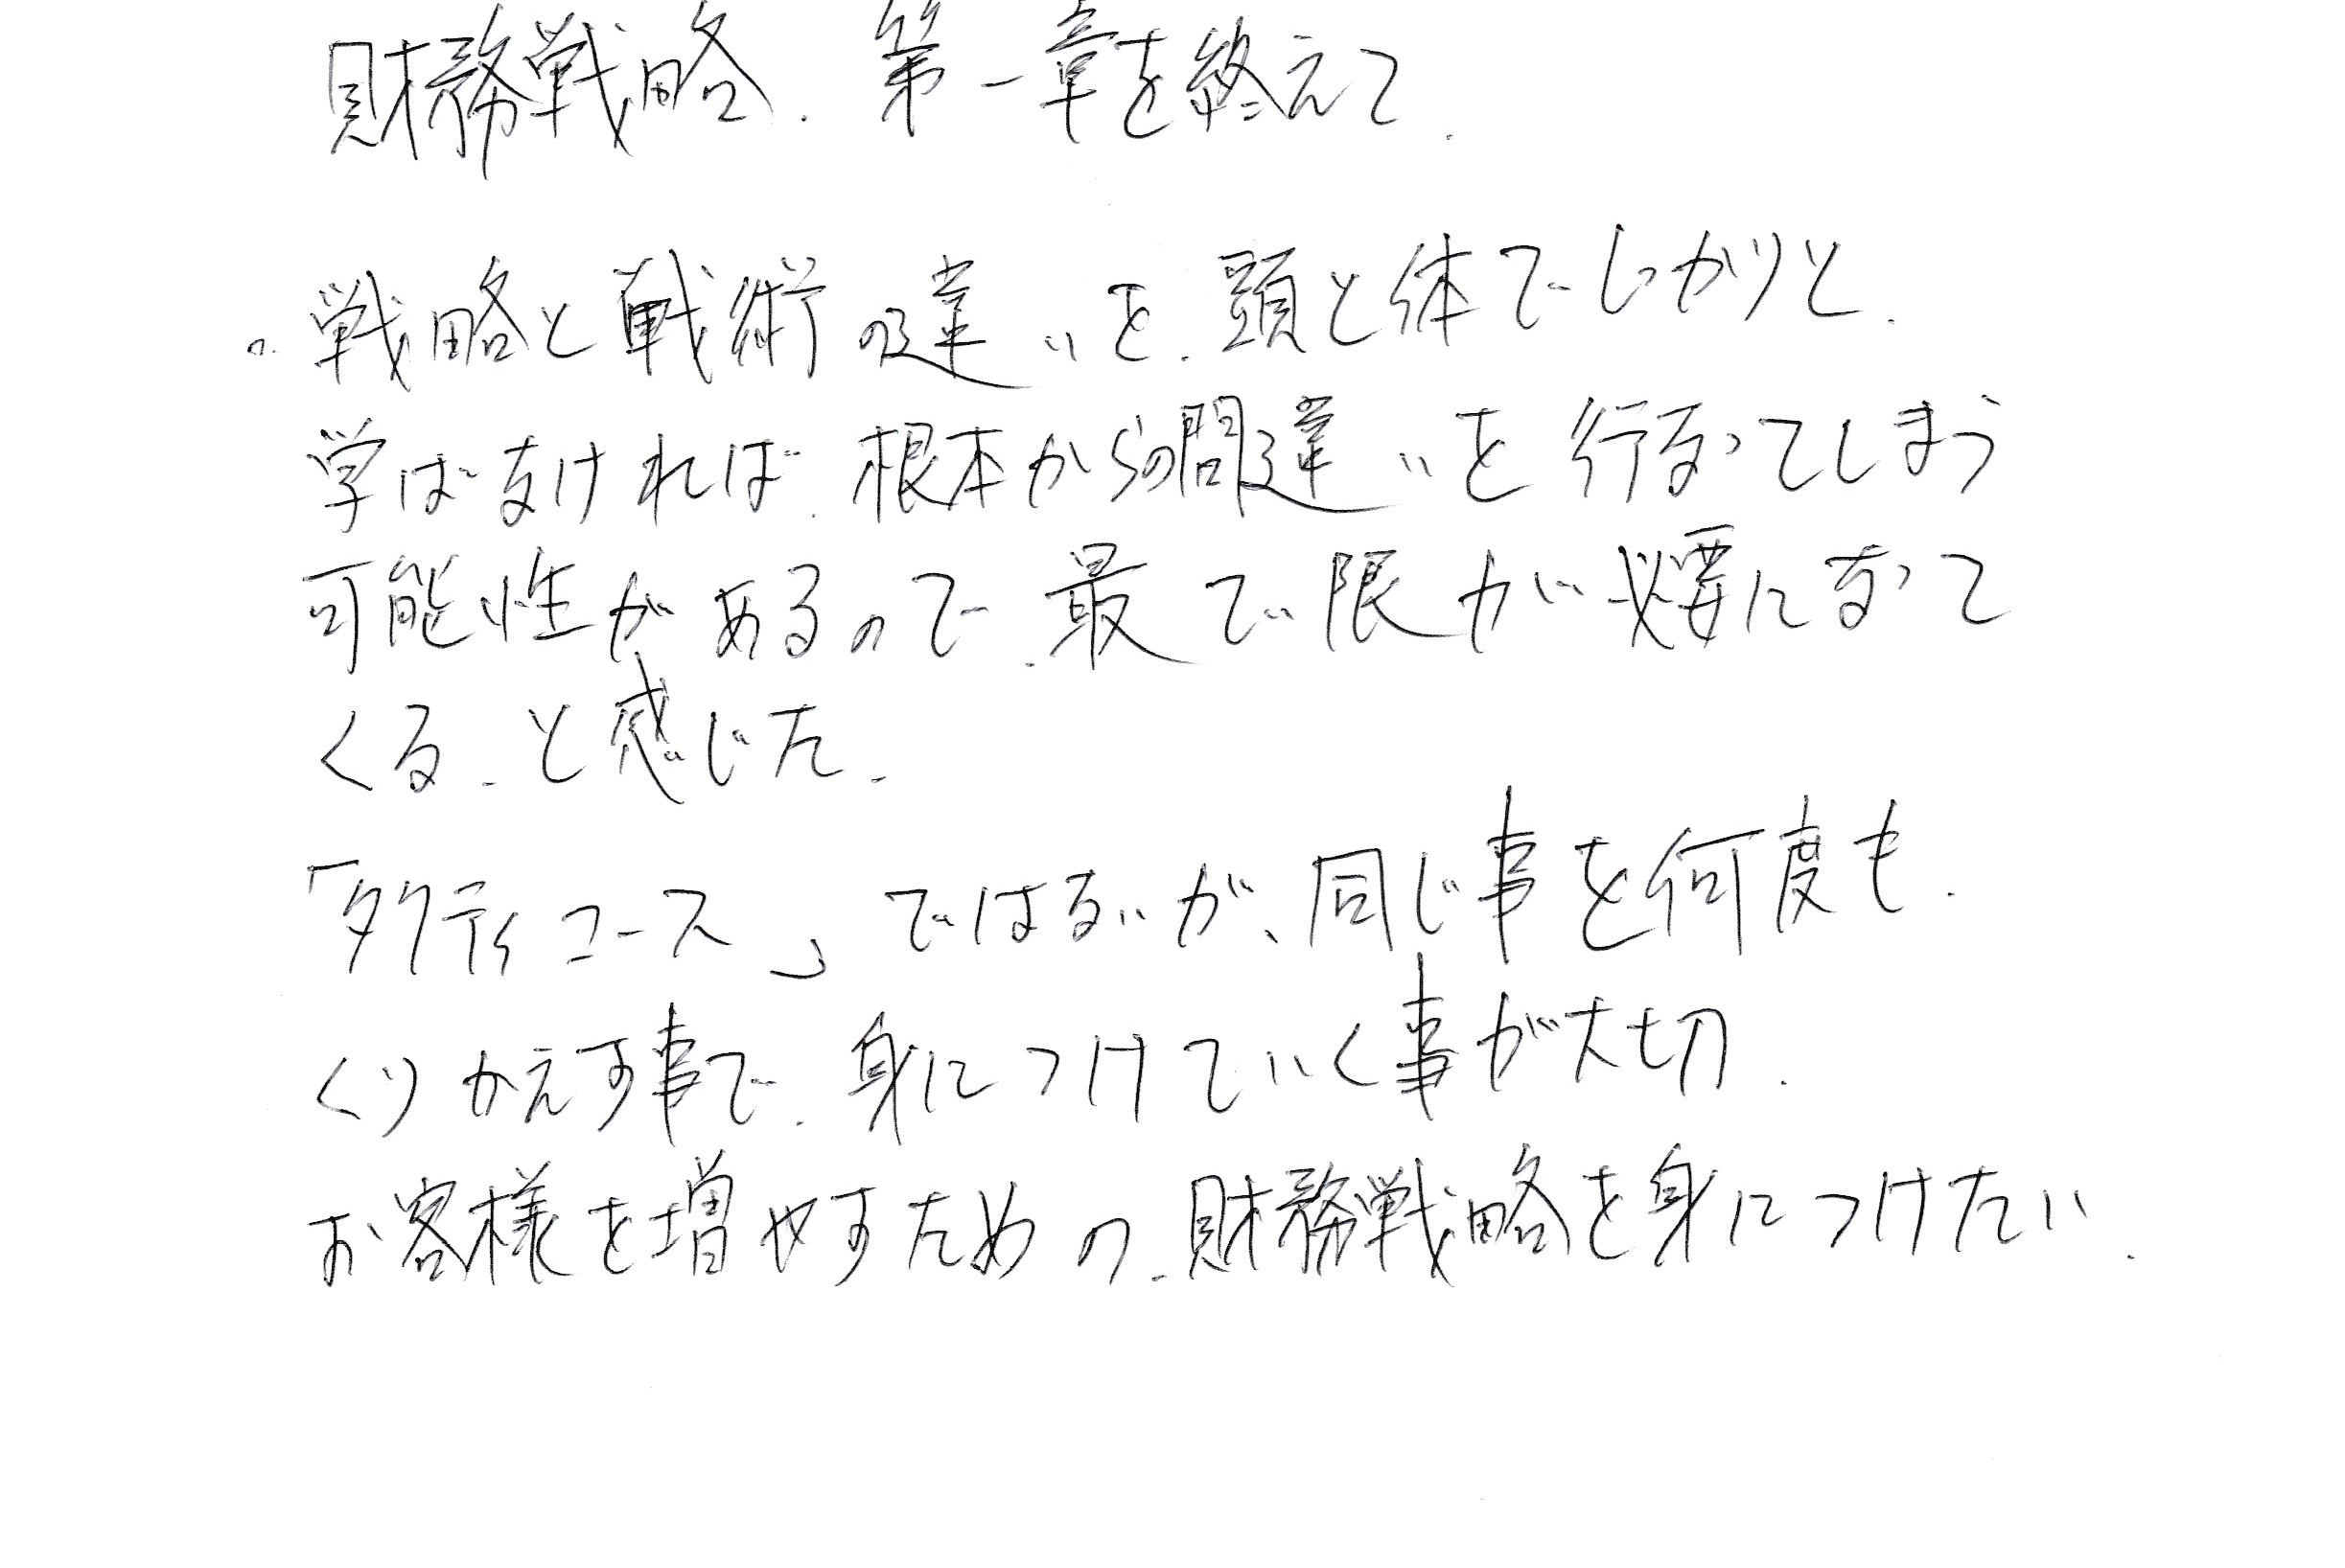 財務戦略. 第一章を終えて.
。戦略と戦術の違いを.頭と体でしっかりと.
学ばなければ.根本からの間違いを行なってしまう
可能性があるので.最で限が必要になって
くる.と感じた.
「タクティコース」ではないが、同じ事を何度も.
くりかえす事で.身につけていく事が大切.
お客様を増やすための.財務戦略を身につけたい.